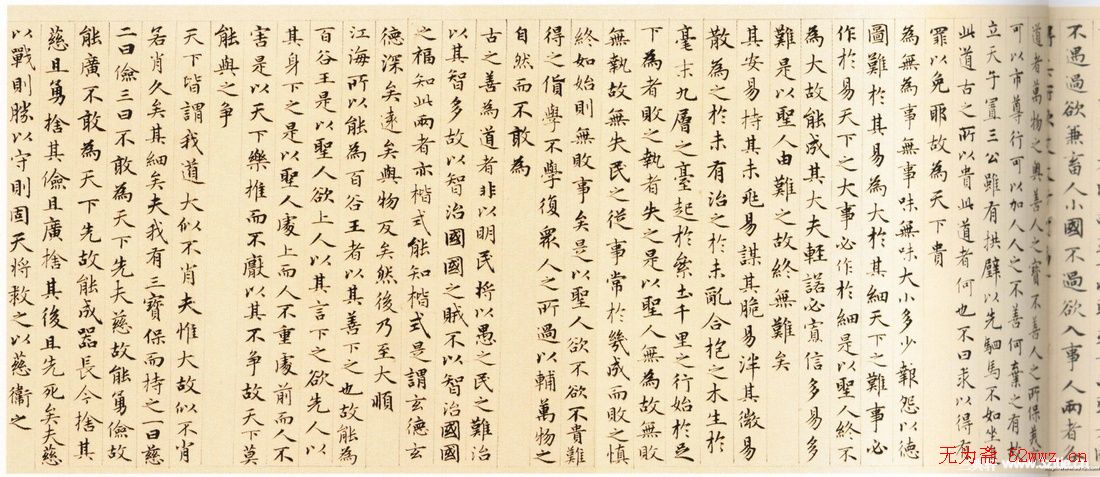 不過過欲兼畜人小國不過欲入事人兩者各
道者萬物之奧善人之寶不善人之所保美
可以市尊行可以加人人之不善何棄之有故
立天子置三公雖有拱璧以先駟馬不如坐
此道古之所以貴此道者何也不曰求以得有
罪以免耶故為天下貴
為無為事無事味無味大小多少報怨以德
圖難於其易為大於其細天下之難事必
作於易天下之大事必作於細是以聖人終不
為大故能成其大夫輕諾必寡信多易多
難是以聖人由難之故終無難矣
其安易持其未兆易謀其脆易泮其微易
散為之於未有治之於未亂合抱之木生於
毫末九層之臺起於絫土千里之行始於足
下為者敗之執者失之是以聖人無為故無敗
無執故無失民之從事常於幾成而敗之慎
終如始則無敗事矣是以聖人欲不欲不貴難
得之貨學不學復眾人之所過以輔萬物之
自然而不敢為
古之善為道者非以明民將以愚之民之難治
以其智多故以智治國國之賊不以智治國國
之福知此兩者亦楷式能知楷式是謂玄德玄
德深矣遠矣與物反矣然後乃至大順
江海所以能為百谷王者以其善下之也故能為
百谷王是以聖人欲上人以其言下之欲先人以
其身下之是以聖人處上而人不重處前而人不
害是以天下樂推而不厭以其不爭故天下莫
能與之爭
天下皆謂我道大似不肖夫惟大故似不肖
若肖久矣其細矣夫我有三寶保而持之一曰慈
二曰儉三曰不敢為天下先夫慈故能勇儉故
能廣不敢為天下先故能成器長今捨其
慈且勇捨其儉且廣捨其後且先死矣夫慈
以戰則勝以守則固天將救之以慈衛之
无为斋 52wwz.cn